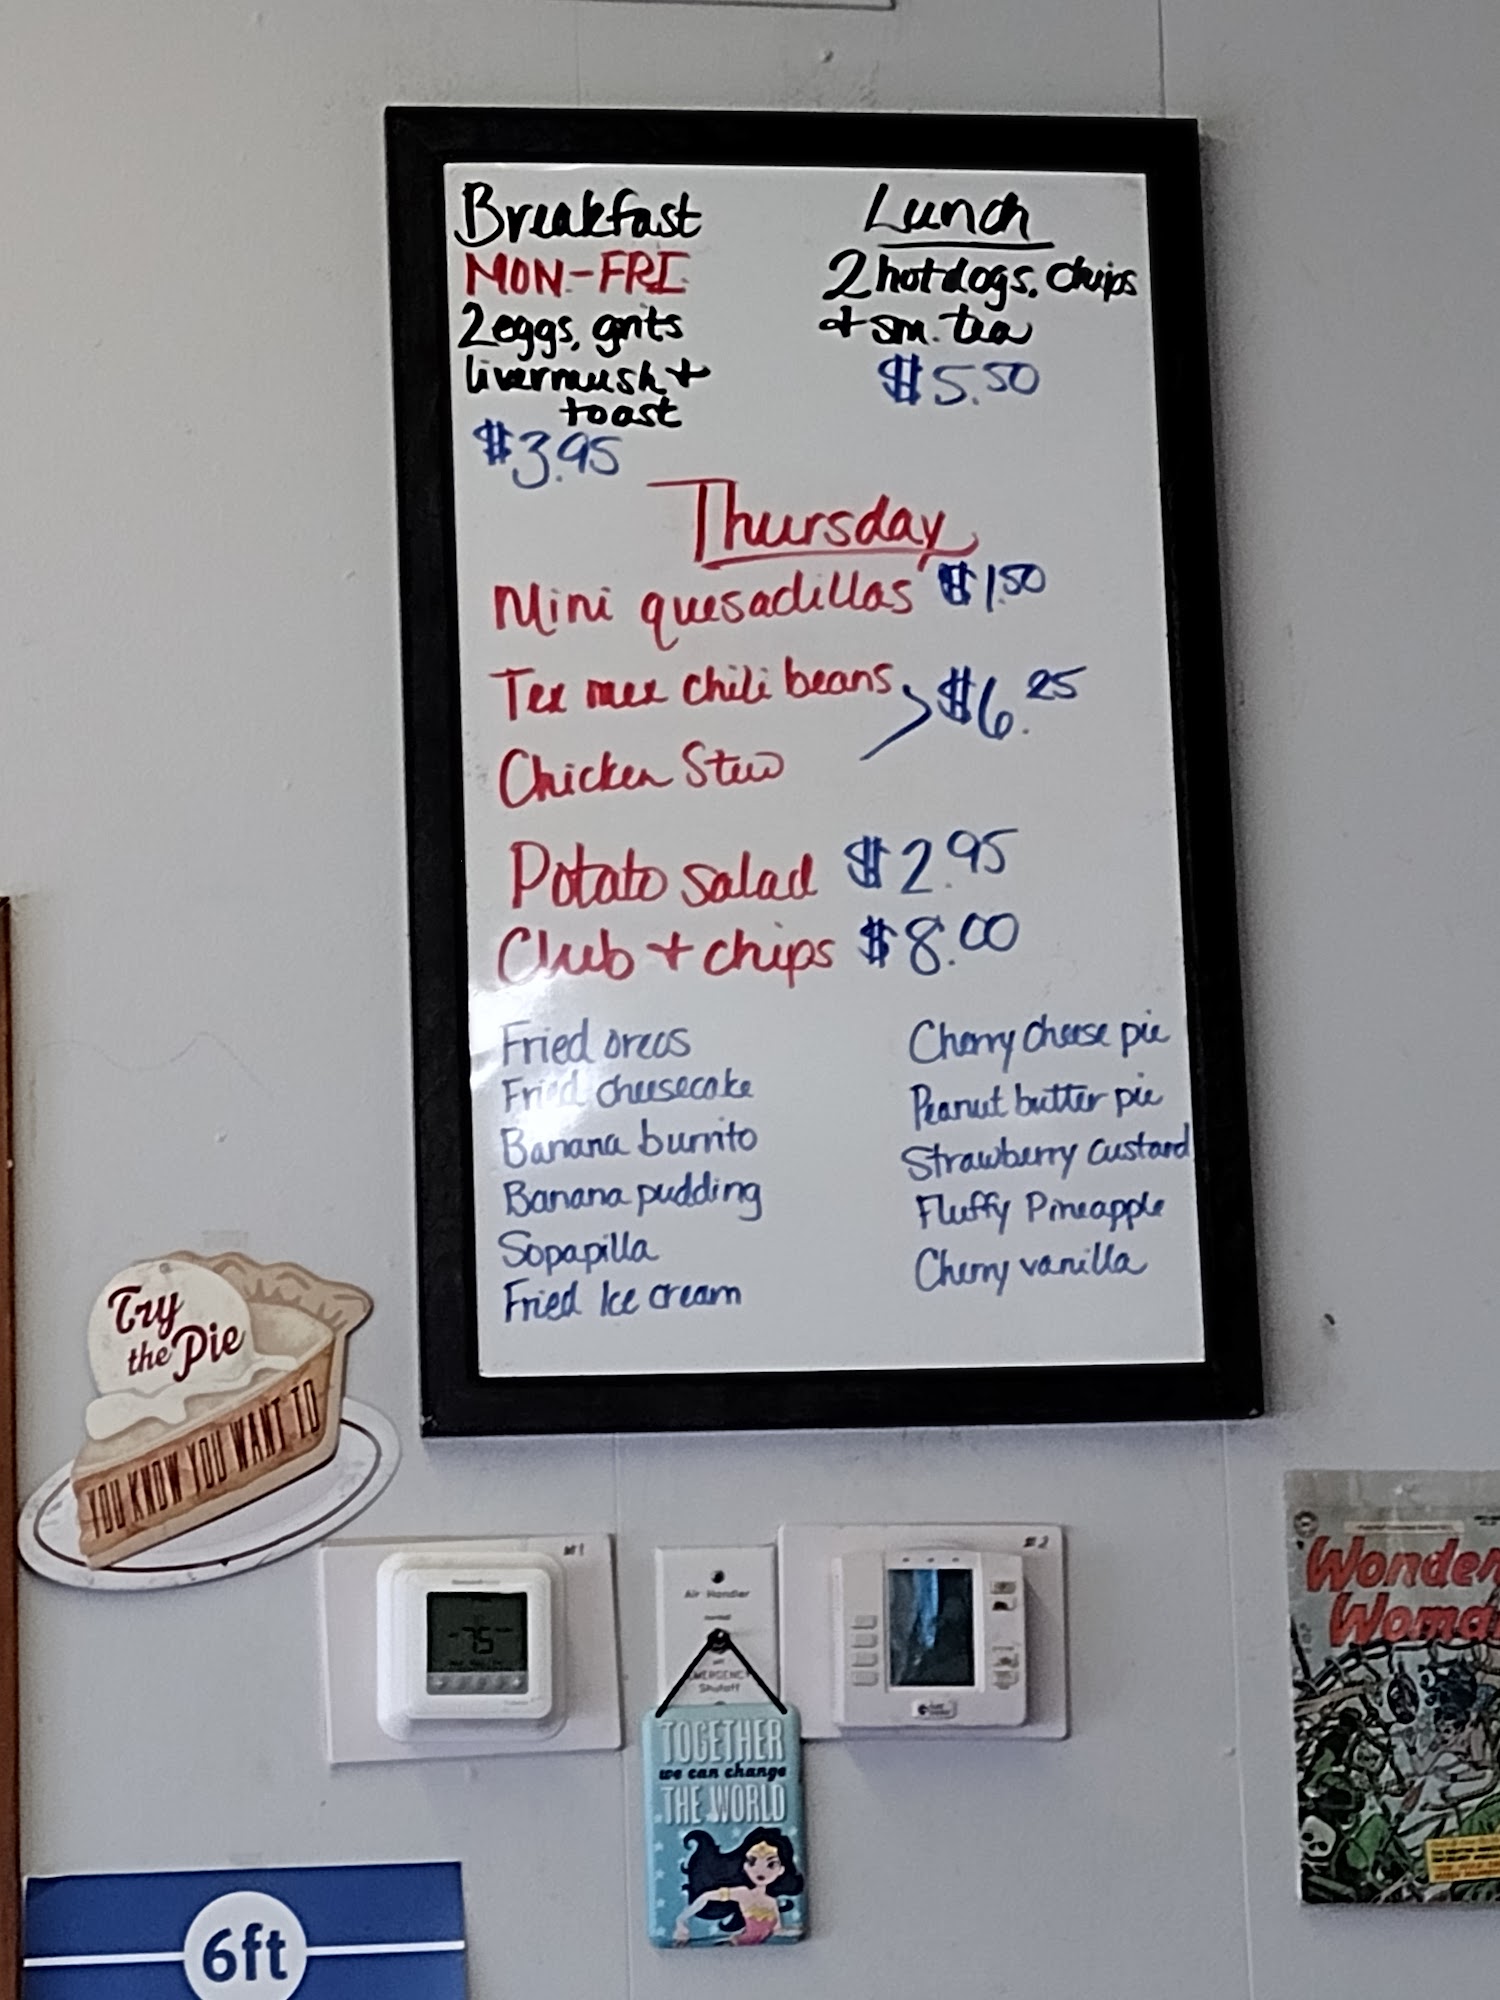 Breakfast
MON-FRI
2 eggs, grits
livermush +
toast
$3.95
Lunch
2 hotdogs, chips
+ sm. tea
$5.50
Thursday
Mini quesadillas $1.50
Tex mex chili beans
$6.25
Chicken Stew
Potato salad $2.95
Club + chips $8.00
Fried oreos
Fried cheesecake
Banana burrito
Banana pudding
Sopapilla
Fried Ice cream
Cherry cheese pie
Peanut butter pie
Strawberry custard
Fluffy Pineapple
Cherry vanilla
Try
the Pie
YOU KNOW YOU WANT TO
#1
75
Air Handler
EMERGENCY
Shutoff
#2
TOGETHER
we can change
THE WORLD
Wonder
Woma
6ft